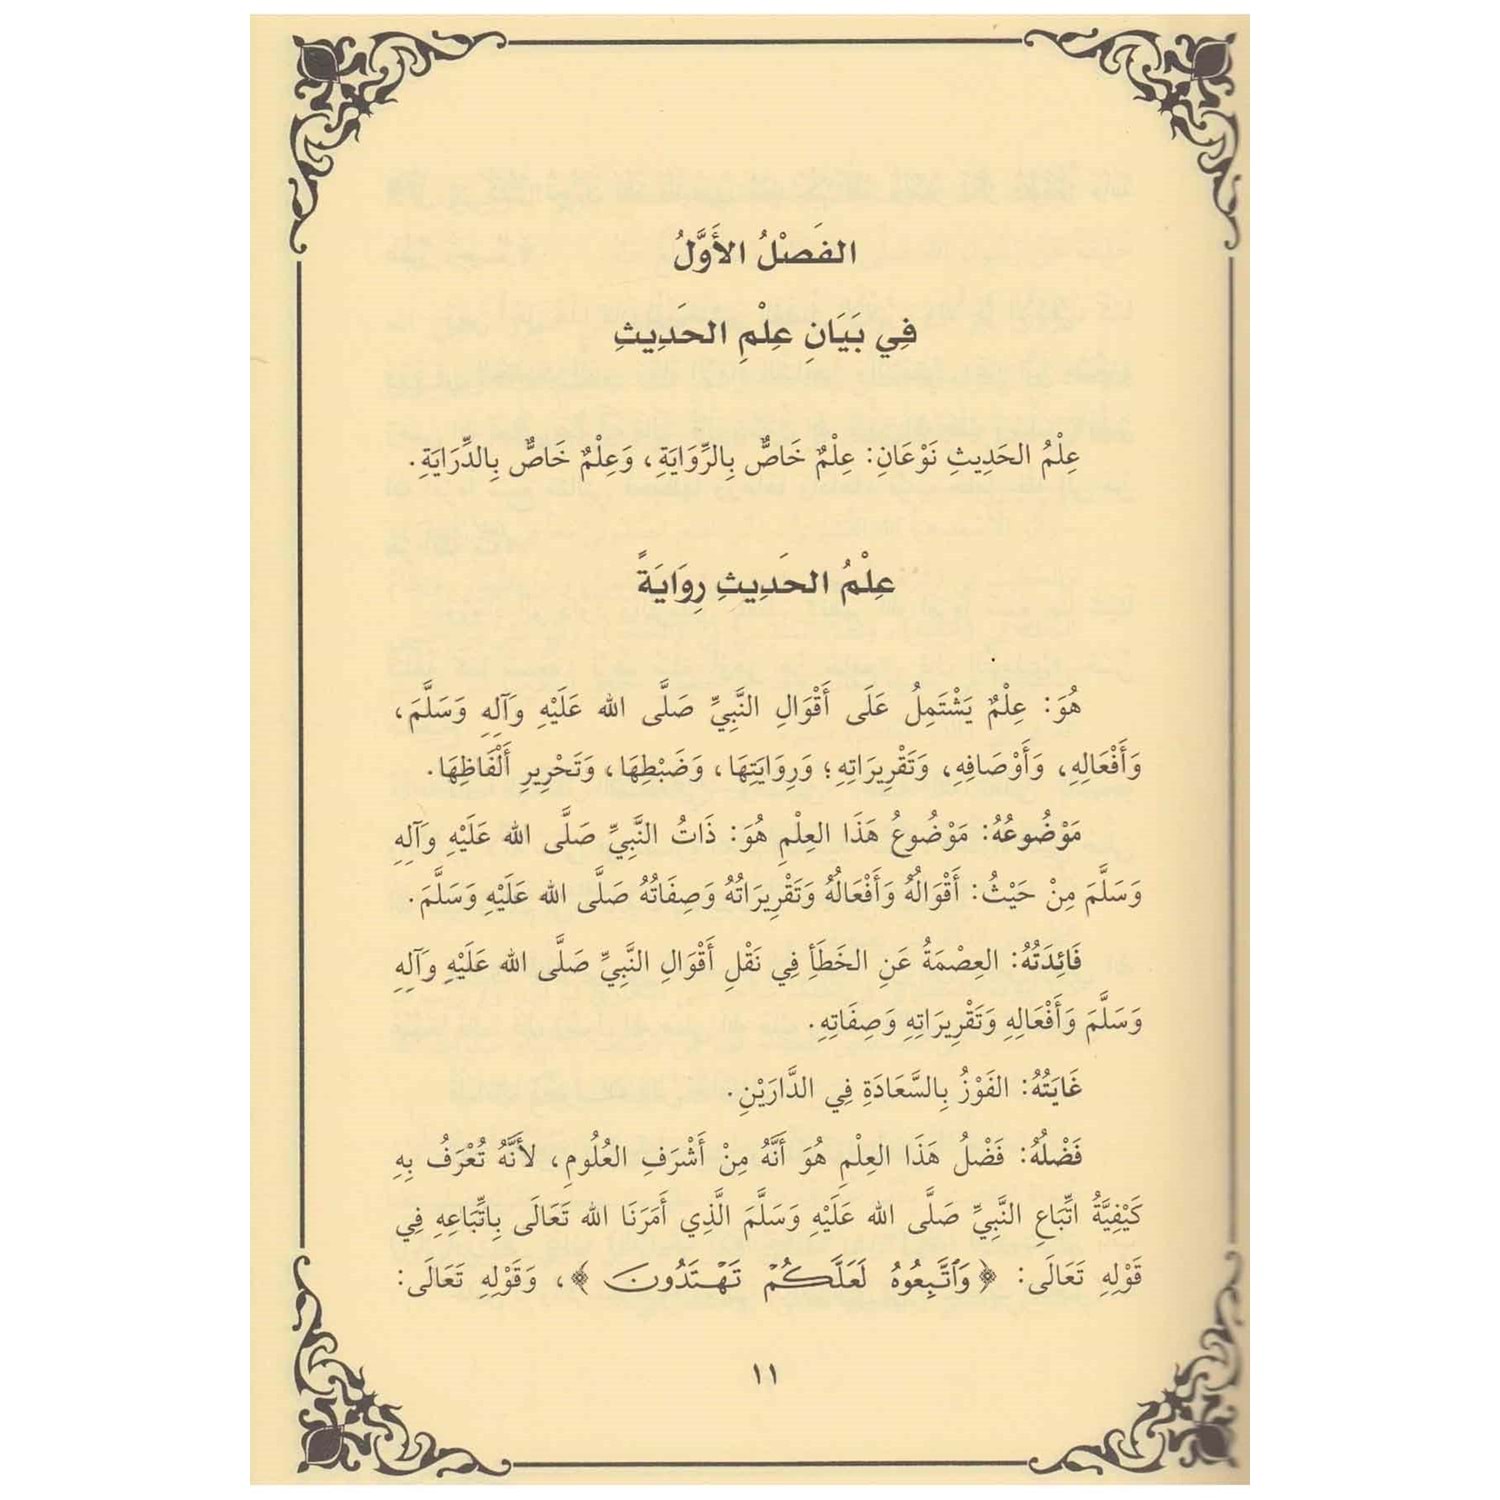 الفَصْلُ الأَوَّلُ
فِي بَيَانِ عِلْمِ الحَدِيثِ
عِلْمُ الحَدِيثِ نَوْعَانِ: عِلْمٌ خَاصٌّ بِالرِّوَايَةِ، وَعِلْمٌ خَاصٌّ بِالدِّرَايَةِ.
عِلْمُ الحَدِيثِ رِوَايَةً
هُوَ: عِلْمٌ يَشْتَمِلُ عَلَى أَقْوَالِ النَّبِيِّ صَلَّى الله عَلَيْهِ وَآلِهِ وَسَلَّمَ،
وَأَفْعَالِهِ، وَأَوْصَافِهِ، وَتَقْرِيرَاتِهِ؛ وَرِوَايَتِهَا، وَضَبْطِهَا، وَتَحْرِيرِ أَلْفَاظِهَا.
مَوْضُوعُهُ: مَوْضُوعُ هَذَا العِلْمِ هُوَ: ذَاتُ النَّبِيِّ صَلَّى الله عَلَيْهِ وَآلِهِ
وَسَلَّمَ مِنْ حَيْثُ: أَقْوَالُهُ وَأَفْعَالُهُ وَتَقْرِيرَاتُهُ وَصِفَاتُهُ صَلَّى الله عَلَيْهِ وَسَلَّمَ.
فَائِدَتُهُ: العِصْمَةُ عَنِ الخَطَأِ فِي نَقْلِ أَقْوَالِ النَّبِيِّ صَلَّى الله عَلَيْهِ وَآلِهِ
وَسَلَّمَ وَأَفْعَالِهِ وَتَقْرِيرَاتِهِ وَصِفَاتِهِ.
غَايَتُهُ: الفَوْزُ بِالسَّعَادَةِ فِي الدَّارَيْنِ.
فَضْلُهُ: فَضْلُ هَذَا العِلْمِ هُوَ أَنَّهُ مِنْ أَشْرَفِ العُلُومِ، لأَنَّهُ تُعْرَفُ بِهِ
كَيْفِيَّةُ اتِّبَاعِ النَّبِيِّ صَلَّى الله عَلَيْهِ وَسَلَّمَ الَّذِي أَمَرَنَا الله تَعَالَى بِاتِّبَاعِهِ فِي
قَوْلِهِ تَعَالَى: ﴿وَٱتَّبِعُوهُ لَعَلَّكُمْ تَهْتَدُونَ﴾، وَقَوْلِهِ تَعَالَى:
١١